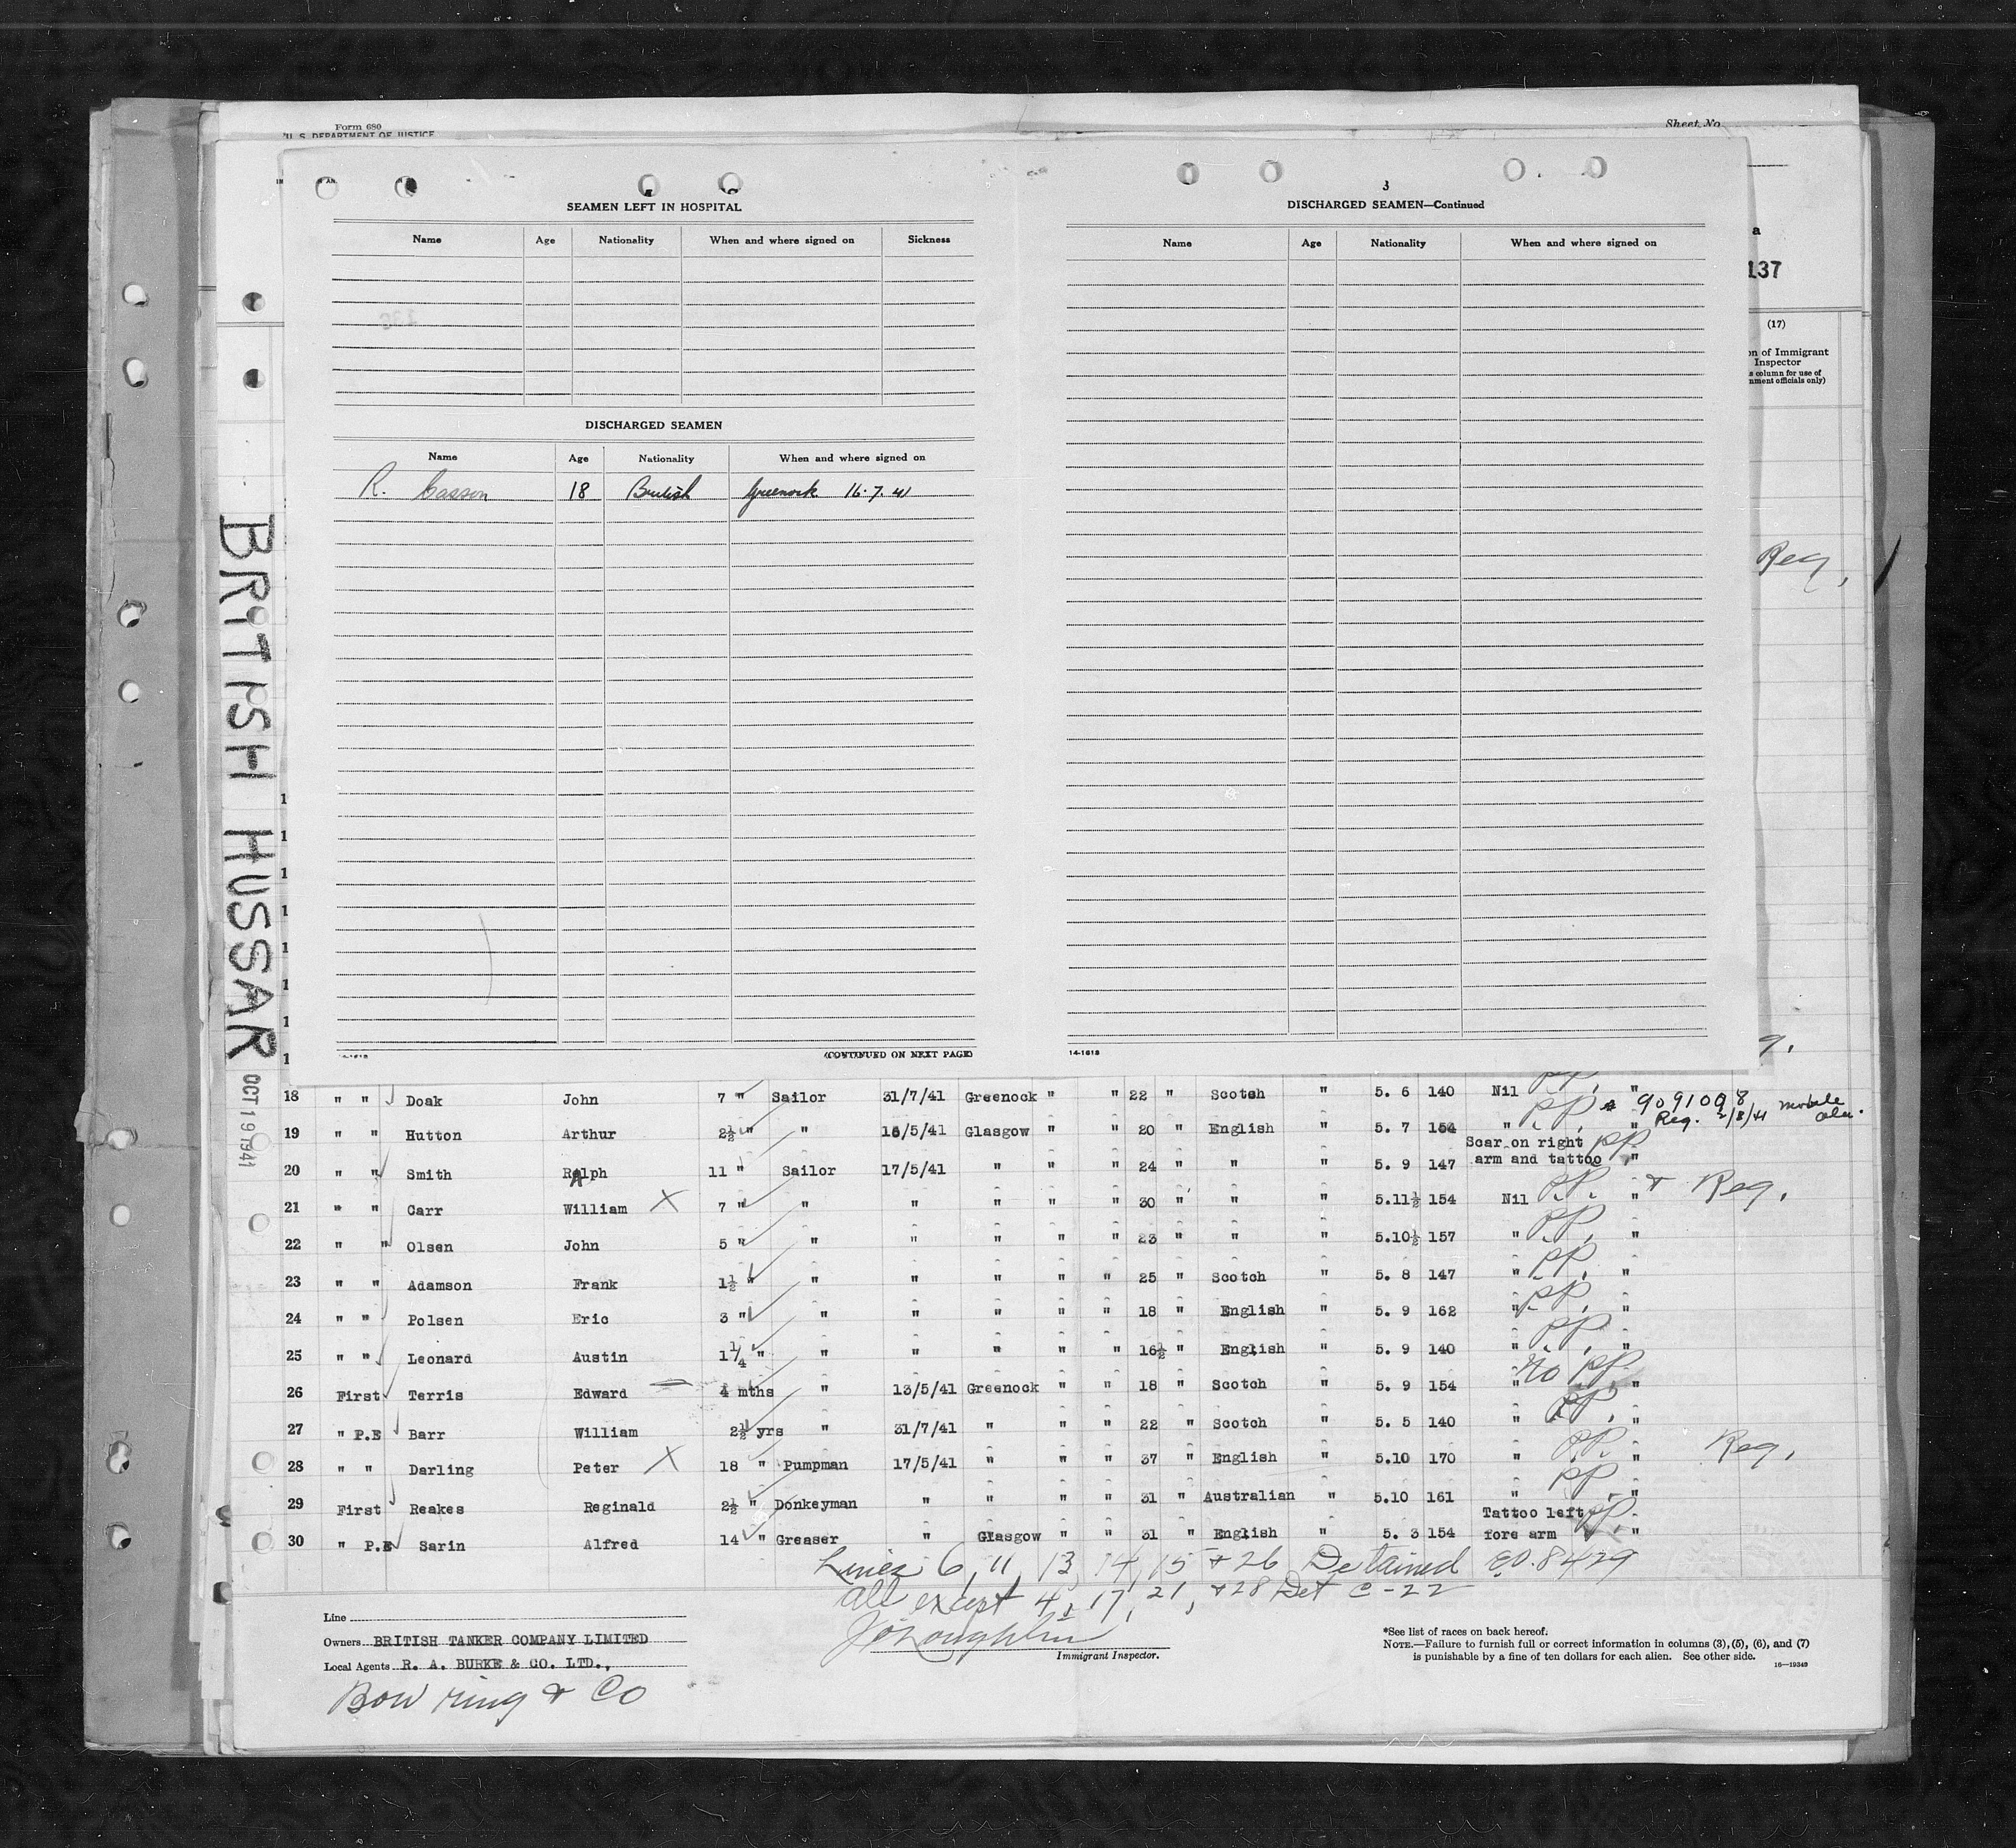 Form 680
U. S. DEPARTMENT OF JUSTICE
Sheet No.
SEAMEN LEFT IN HOSPITAL
Name Age Nationality When and where signed on Sickness
DISCHARGED SEAMEN
Name Age Nationality When and where signed on
R. Casson 18 British Greenock 16.7.41
(CONTINUED ON NEXT PAGE)
3
DISCHARGED SEAMEN—Continued
Name Age Nationality When and where signed on
14-1618
a
137
(17)
on of Immigrant
Inspector
s column for use of
nment officials only)
Req,
BRITISH HUSSAR
OCT 19 1941
18 " " Doak John 7 " Sailor 31/7/41 Greenock " " 22 " Scotch " 5. 6 140 Nil PP, "
9091098 Mobile
Reg. 2/8/41 Ala.
19 " " Hutton Arthur 2½ " " 16/5/41 Glasgow " " 20 " English " 5. 7 154 " PP, "
20 " " Smith Ralph 11 " Sailor 17/5/41 " " " 24 " " " 5. 9 147 Scar on right arm and tattoo PP, "
21 " " Carr William X 7 " " " " " " 30 " " " 5.11½ 154 Nil PP. " + Req,
22 " " Olsen John 5 " " " " " " 23 " " " 5.10½ 157 " PP, "
23 " " Adamson Frank 1½ " " " " " " 25 " Scotch " 5. 8 147 " PP, "
24 " " Polsen Eric 3 " " " " " " 18 " English " 5. 9 162 " PP, "
25 " " Leonard Austin 1¼ " " " " " " 16½ " English " 5. 9 140 " PP, "
26 First Terris Edward 4 mths " 13/5/41 Greenock " " 18 " Scotch " 5. 9 154 " no PP, "
27 " P.E Barr William 2½ yrs " 31/7/41 " " " 22 " Scotch " 5. 5 140 " PP, "
28 " " Darling Peter X 18 " Pumpman 17/5/41 " " " 37 " English " 5.10 170 " PP. " Req,
29 First Reakes Reginald 2½ " Donkeyman " " " " 31 " Australian " 5.10 161 " PP, "
30 " P.E Sarin Alfred 14 " Greaser " Glasgow " " 31 " English " 5. 3 154 Tattoo left fore arm PP. "
Lines 6, 11, 13, 14, 15 + 26 Detained EO.8429
all except 4, 17, 21, +28 Det C-22
J O'Loughlin
Immigrant Inspector.
Line
Owners BRITISH TANKER COMPANY LIMITED
Local Agents R. A. BURKE & CO. LTD.,
Bowring & Co
*See list of races on back hereof.
NOTE.—Failure to furnish full or correct information in columns (3), (5), (6), and (7)
is punishable by a fine of ten dollars for each alien. See other side.
16—19349